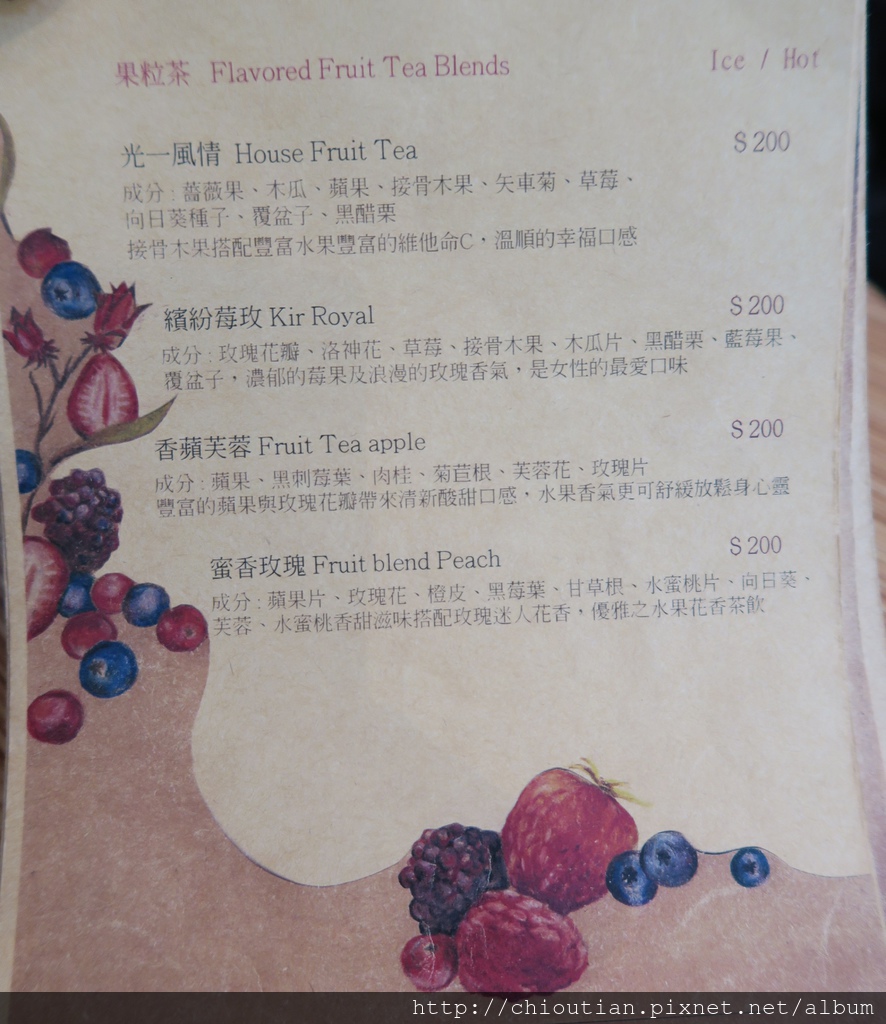 果粒茶 Flavored Fruit Tea Blends Ice / Hot
光一風情 House Fruit Tea $200
成分:薔薇果、木瓜、蘋果、接骨木果、矢車菊、草莓、
向日葵種子、覆盆子、黑醋栗
接骨木果搭配豐富水果豐富的維他命C,溫順的幸福口感
繽紛莓玫 Kir Royal $200
成分:玫瑰花瓣、洛神花、草莓、接骨木果、木瓜片、黑醋栗、藍莓果、
覆盆子,濃郁的莓果及浪漫的玫瑰香氣,是女性的最愛口味
香蘋芙蓉 Fruit Tea apple $200
成分:蘋果、黑刺莓葉、肉桂、菊苣根、芙蓉花、玫瑰片
豐富的蘋果與玫瑰花瓣帶來清新酸甜口感,水果香氣更可舒緩放鬆身心靈
蜜香玫瑰 Fruit blend Peach $200
成分:蘋果片、玫瑰花、橙皮、黑莓葉、甘草根、水蜜桃片、向日葵、
芙蓉、水蜜桃香甜滋味搭配玫瑰迷人花香,優雅之水果花香茶飲
http://chioutian.pixnet.net/album